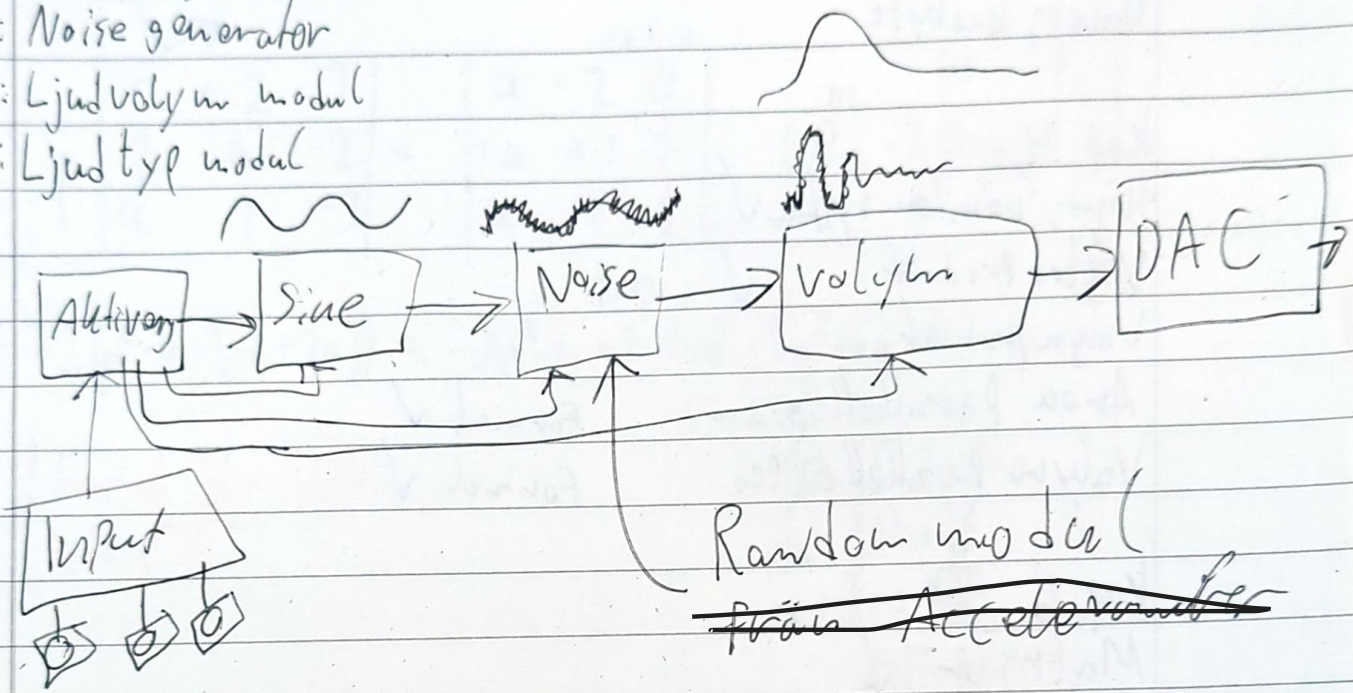 : Noise generator
: Ljudvolym modul
: Ljudtyp modul
Aktivering
Sine
Noise
Volym
DAC
Input
Random modul
från Accelerometer